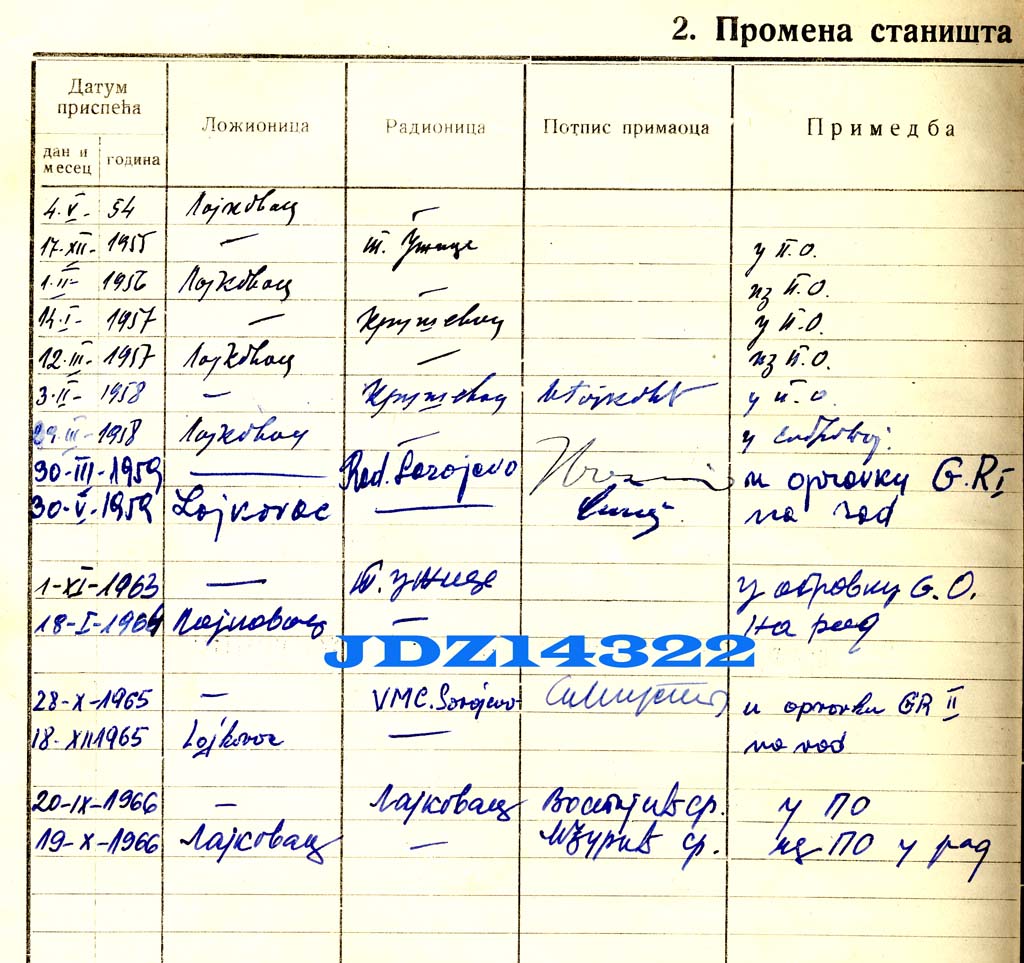 2. Промена станишта
Датум приспећа
Ложионица
Радионица
Потпис примаоца
Примедба
дан и месец
година
4.V- 54 Лајковац —
17.XII- 1955 — т. Ужице у П.О.
1.II- 1956 Лајковац — из П.О.
14.I- 1957 — Крушевац у П.О.
12.III- 1957 Лајковац — из П.О.
3.II- 1958 — Крушевац у П.О.
29.III- 1958 Лајковац у
30-III-1959 — Rad. Sarajevo u opravku G.R I
30-V-1959 Lajkovac — na rad
1-XI-1963 — Т. Ужице у оправку G.O.
18-I-1964 Лајковац — на рад
JDZ14322
28-X-1965 — VMC. Sarajevo u opravku GR II
18-XII 1965 Lajkovac — na rad
20-IX-1966 — Лајковац ср. у ПО
19-X-1966 Лајковац — ср. из ПО у рад